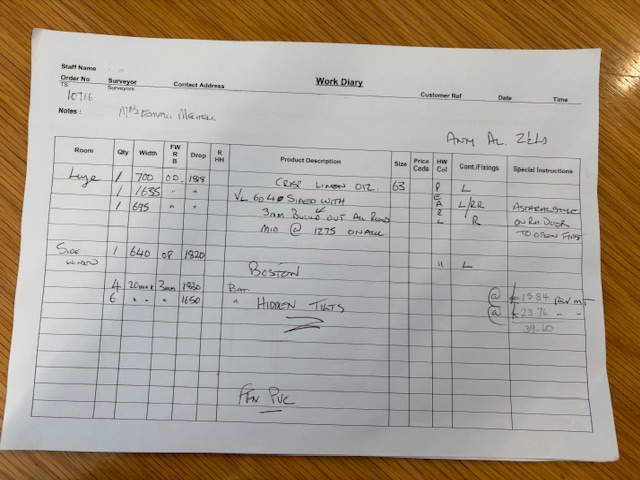 Staff Name
Work Diary
Order No Surveyor Contact Address Customer Ref Date Time
TS Surveyors
10766
Notes : Mrs Emma
Room Qty Width FW R B Drop R HH Product Description Size Price Code HW Col Cont./Fixings Special Instructions
1 700 OO 1818 CRISP LINEN 63 P L
1 1635 " " VL 60 40 SIDED WITH E L/RR
1 695 " " 3mm BUILD OUT ALL ROUND A R ON RH DOOR
MID @ 1275 ON ALL R L TO OPEN FIRST
SIDE WINDOW 1 640 OP 1820
BOSTON " L
4 20mm x 3mm 1830 @ £15.84 per mt
6 " " " 1650 " HIDDEN TILTS @ £23.76 " "
39-60
PVC